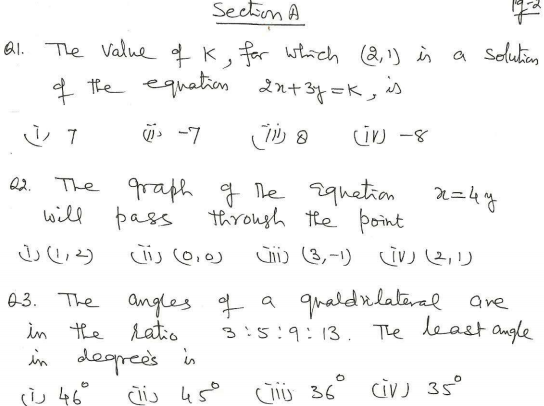 Section A
pg-2
Q1. The Value of K, for which (2,1) is a solution
of the equation 2x+3y=K, is
(i) 7 (ii) -7 (iii) 8 (iv) -8
Q2. The graph of the Equation x=4y
will pass through the point
(i) (1,2) (ii) (0,0) (iii) (3,-1) (iv) (2,1)
Q3. The angles of a qualdrilateral are
in the ratio 3:5:9:13. The least angle
in degrees is
(i) 46° (ii) 45° (iii) 36° (iv) 35°